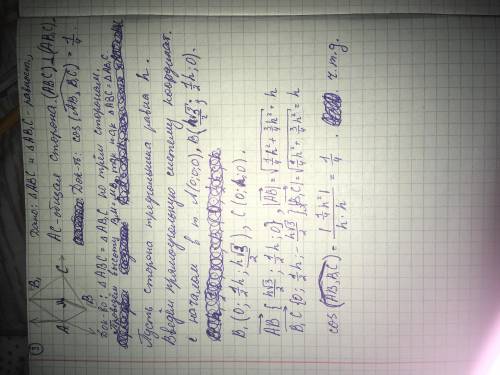 ③ Дано: △ABC и △AB₁C равност.,
AC - общая сторона. (ABC)⊥(AB₁C).
Док-ть: cos(AB, B₁C) = 1/4.
A B₁ C M B
Док-во: △ABC = △AB₁C по трём сторонам.
Проведём высоты BM и B₁M, так как △ABC = △AB₁C
Пусть сторона треугольника равна h.
Введём прямоугольную систему координат.
с началом в т. A(0;0;0), B(h√3/2; 1/2h; 0).
B₁(0; 1/2h; h√3/2), C(0; h; 0).
AB {h√3/2; 1/2h; 0}, |AB| = √(1/4h² + 3/4h²) = h
B₁C {0; 1/2h; -h√3/2}, |B₁C| = √(1/4h² + 3/4h²) = h
cos(AB, B₁C) = |1/4h²| / h·h = 1/4. ч.т.д.